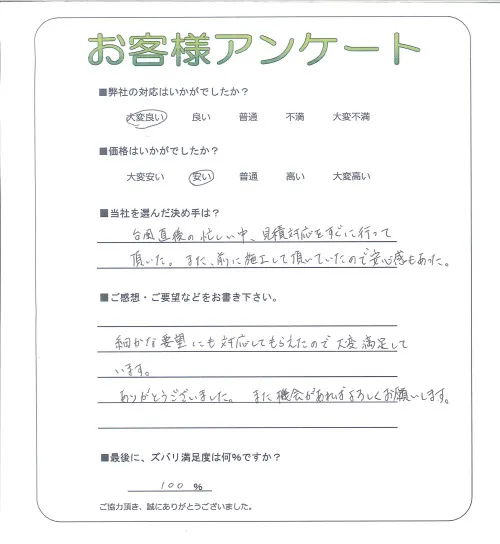 お客様アンケート
■弊社の対応はいかがでしたか？
大変良い 良い 普通 不満 大変不満
■価格はいかがでしたか？
大変安い 安い 普通 高い 大変高い
■当社を選んだ決め手は？
台風直後の忙しい中、見積対応をすぐに行って
頂いた。また、前に施工して頂いていたので安心感もあった。
■ご感想・ご要望などをお書き下さい。
細かな要望にも対応してもらえたので大変満足して
います。
ありがとうございました。また機会があればよろしくお願いします。
■最後に、ズバリ満足度は何％ですか？
100 %
ご協力頂き、誠にありがとうございました。